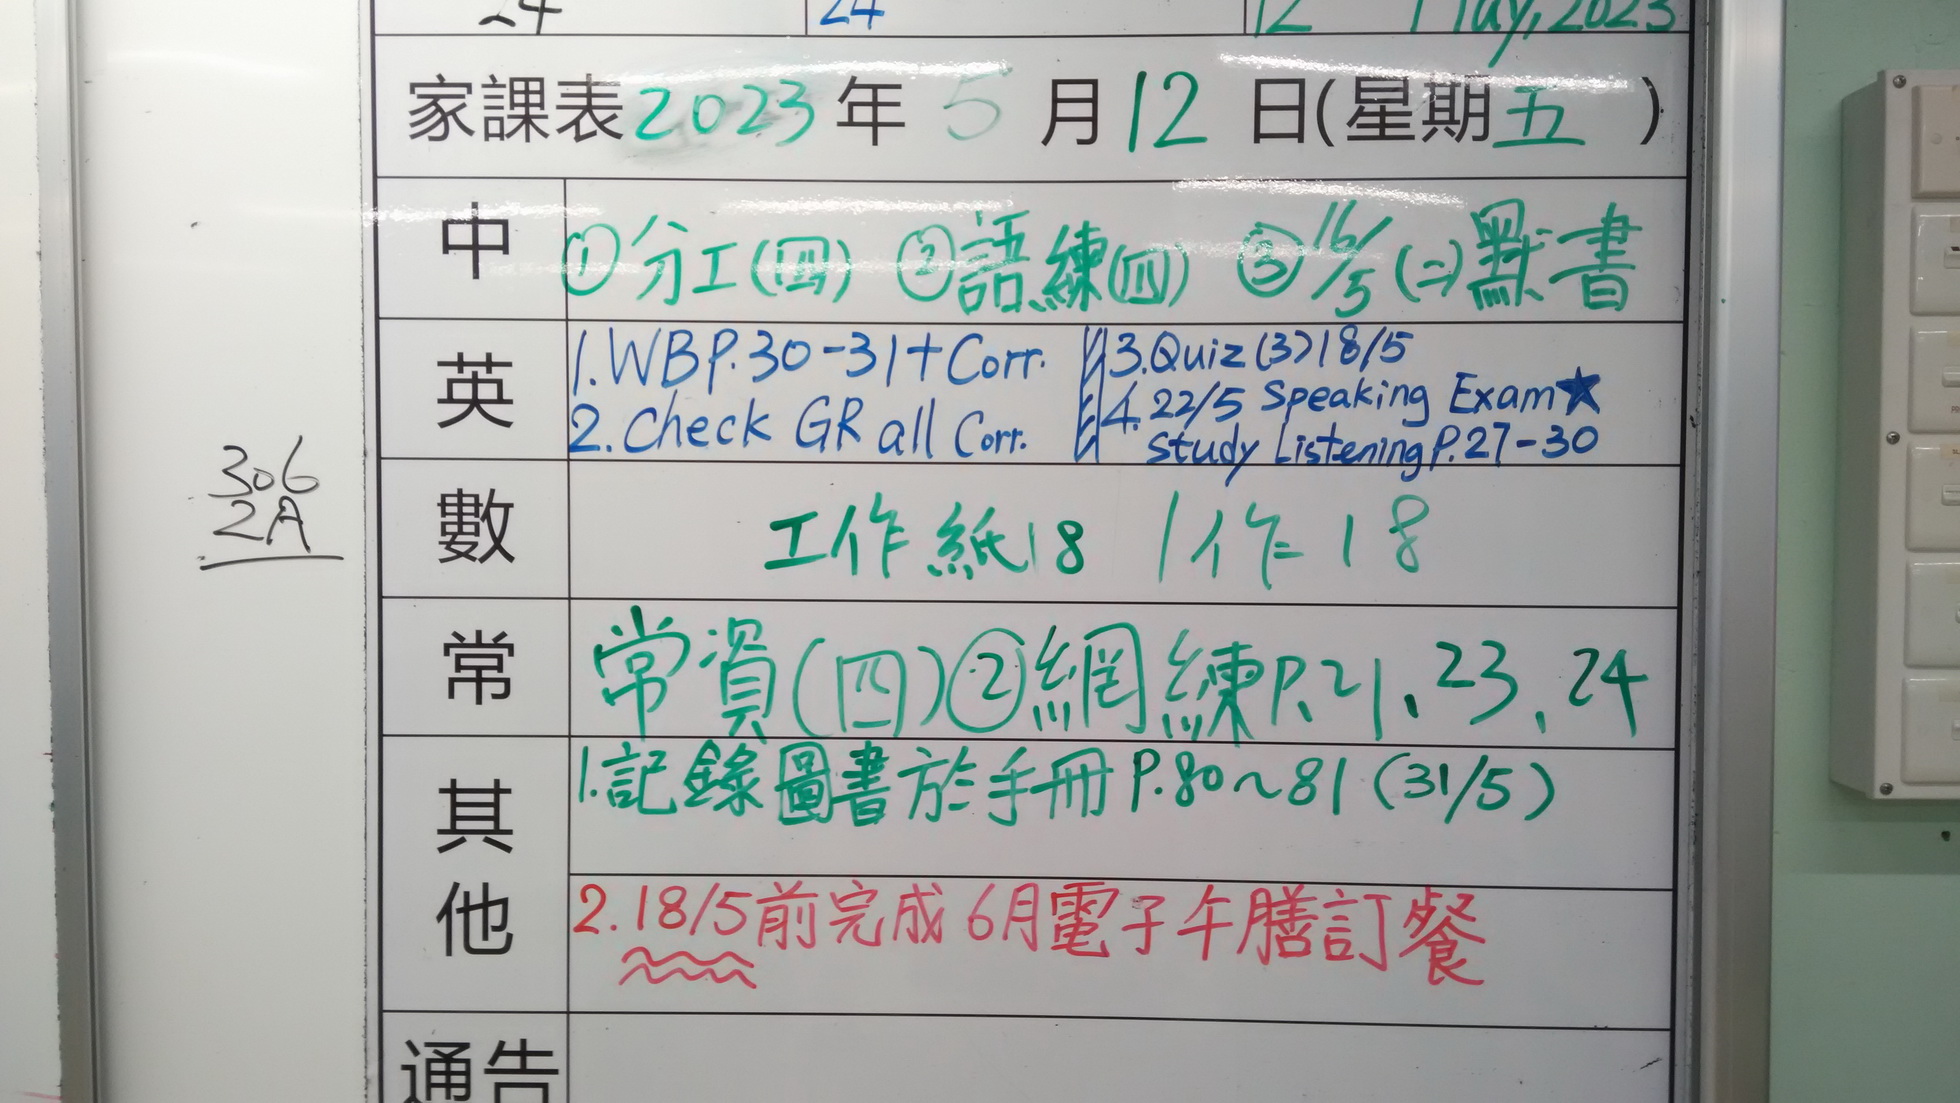 24 24 12 May, 2023
家課表2023年5月12日(星期五)
中 ①分工(四) ②語練(四) ③16/5(二)默書
英 1.WBP.30-31+Corr. 3.Quiz(3)18/5
2.Check GR all Corr. 4.22/5 Speaking Exam★
Study Listening P.27-30
306
2A
數 工作紙18 / 作18
常 常資(四)②網練P.21、23、24
其他 1.記錄圖書於手冊P.80~81(31/5)
2.18/5前完成6月電子午膳訂餐
通告